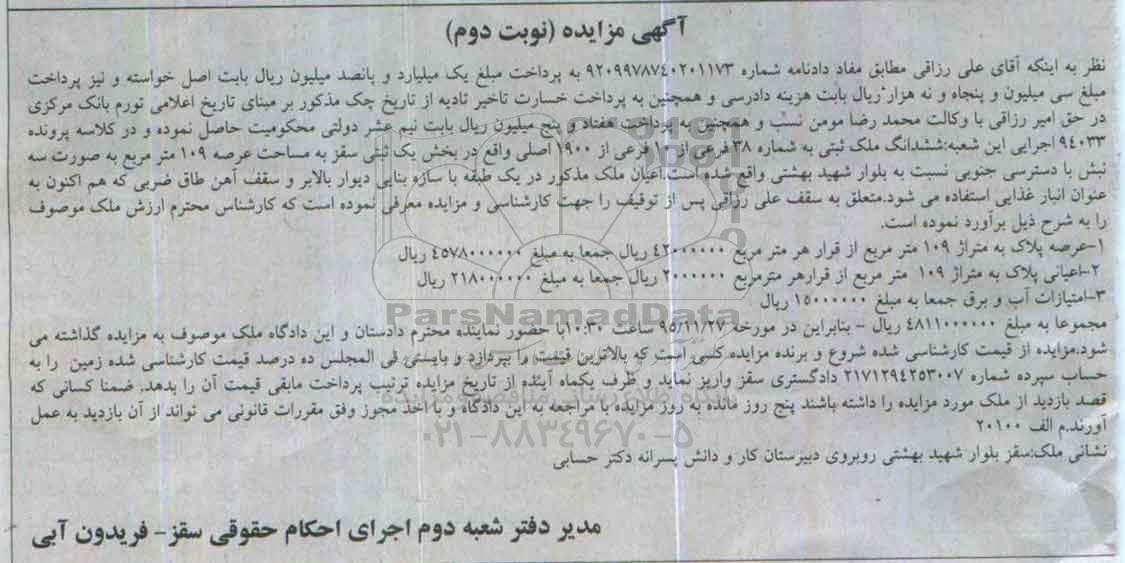 آگهی مزایده (نوبت دوم)
نظر به اینکه آقای علی رزاقی مطابق مفاد دادنامه شماره ۹۲۰۹۹۷۸۷۴۰۲۰۱۱۷۳ به پرداخت مبلغ یک میلیارد و پانصد میلیون ریال بابت اصل خواسته و نیز پرداخت
مبلغ سی میلیون و پنجاه و نه هزار ریال بابت هزینه دادرسی و همچنین به پرداخت خسارت تاخیر تادیه از تاریخ چک مذکور بر مبنای تاریخ اعلامی تورم بانک مرکزی
در حق امیر رزاقی با وکالت محمد رضا مومن نسب و همچنین به پرداخت هفتاد و پنج میلیون ریال بابت نیم عشر دولتی محکومیت حاصل نموده و دو کلاسه پرونده
۹۴۰۳۳ اجرایی این شعبه:ششدانگ ملک ثبتی به شماره ۳۸ فرعی از ۱۰ فرعی از ۱۹۰۰ اصلی واقع در بخش یک ثبتی سقز به مساحت عرصه ۱۰۹ متر مربع به صورت سه
نبش با دسترسی جنوبی نسبت به بلوار شهید بهشتی واقع شده است.اعیان ملک مذکور در یک طبقه با سازه بنایی دیوار بالابر و سقف آهن طاق ضربی که هم اکنون به
عنوان انبار غذایی استفاده می شود.متعلق به سقف علی رزاقی پس از توقیف را جهت کارشناسی و مزایده معرفی نموده است که کارشناس محترم ارزش ملک موصوف
را به شرح ذیل برآورد نموده است.
۱-عرصه پلاک به متراژ ۱۰۹ متر مربع از قرار هر متر مربع ۴۲۰۰۰۰۰۰ ریال جمعا به مبلغ ۴۵۷۸۰۰۰۰۰۰ ریال
۲-اعیانی پلاک به متراژ ۱۰۹ متر مربع از قرارهر مترمربع ۲۰۰۰۰۰۰ ریال جمعا به مبلغ ۲۱۸۰۰۰۰۰۰ ریال
۳-امتیازات آب و برق جمعا به مبلغ ۱۵۰۰۰۰۰۰ ریال
مجموعا به مبلغ ۴۸۱۱۰۰۰۰۰۰ ریال - بنابراین در مورخه ۹۵/۱۱/۲۷ ساعت ۱۰:۳۰با حضور نماینده محترم دادستان و این دادگاه ملک موصوف به مزایده گذاشته می
شود.مزایده از قیمت کارشناسی شده شروع و برنده مزایده کسی است که بالاترین قیمت را بپردازد و بایستی فی المجلس ده درصد قیمت کارشناسی شده زمین را به
حساب سپرده شماره ۲۱۷۱۲۹۴۲۵۳۰۰۷ دادگستری سقز واریز نماید و ظرف یکماه آینده از تاریخ مزایده ترتیب پرداخت مابقی قیمت آن را بدهد. ضمنا کسانی که
قصد بازدید از ملک مورد مزایده را داشته باشند پنج روز مانده به روز مزایده با مراجعه به این دادگاه و با اخذ مجوز وفق مقررات قانونی می تواند از آن بازدید به عمل
آورند.م الف ۲۰۱۰۰
نشانی ملک:سقز بلوار شهید بهشتی روبروی دبیرستان کار و دانش پسرانه دکتر حسابی
مدیر دفتر شعبه دوم اجرای احکام حقوقی سقز- فریدون آبی
ParsNamadData
۰۲۱-۸۸۳۴۹۶۷۰-۵